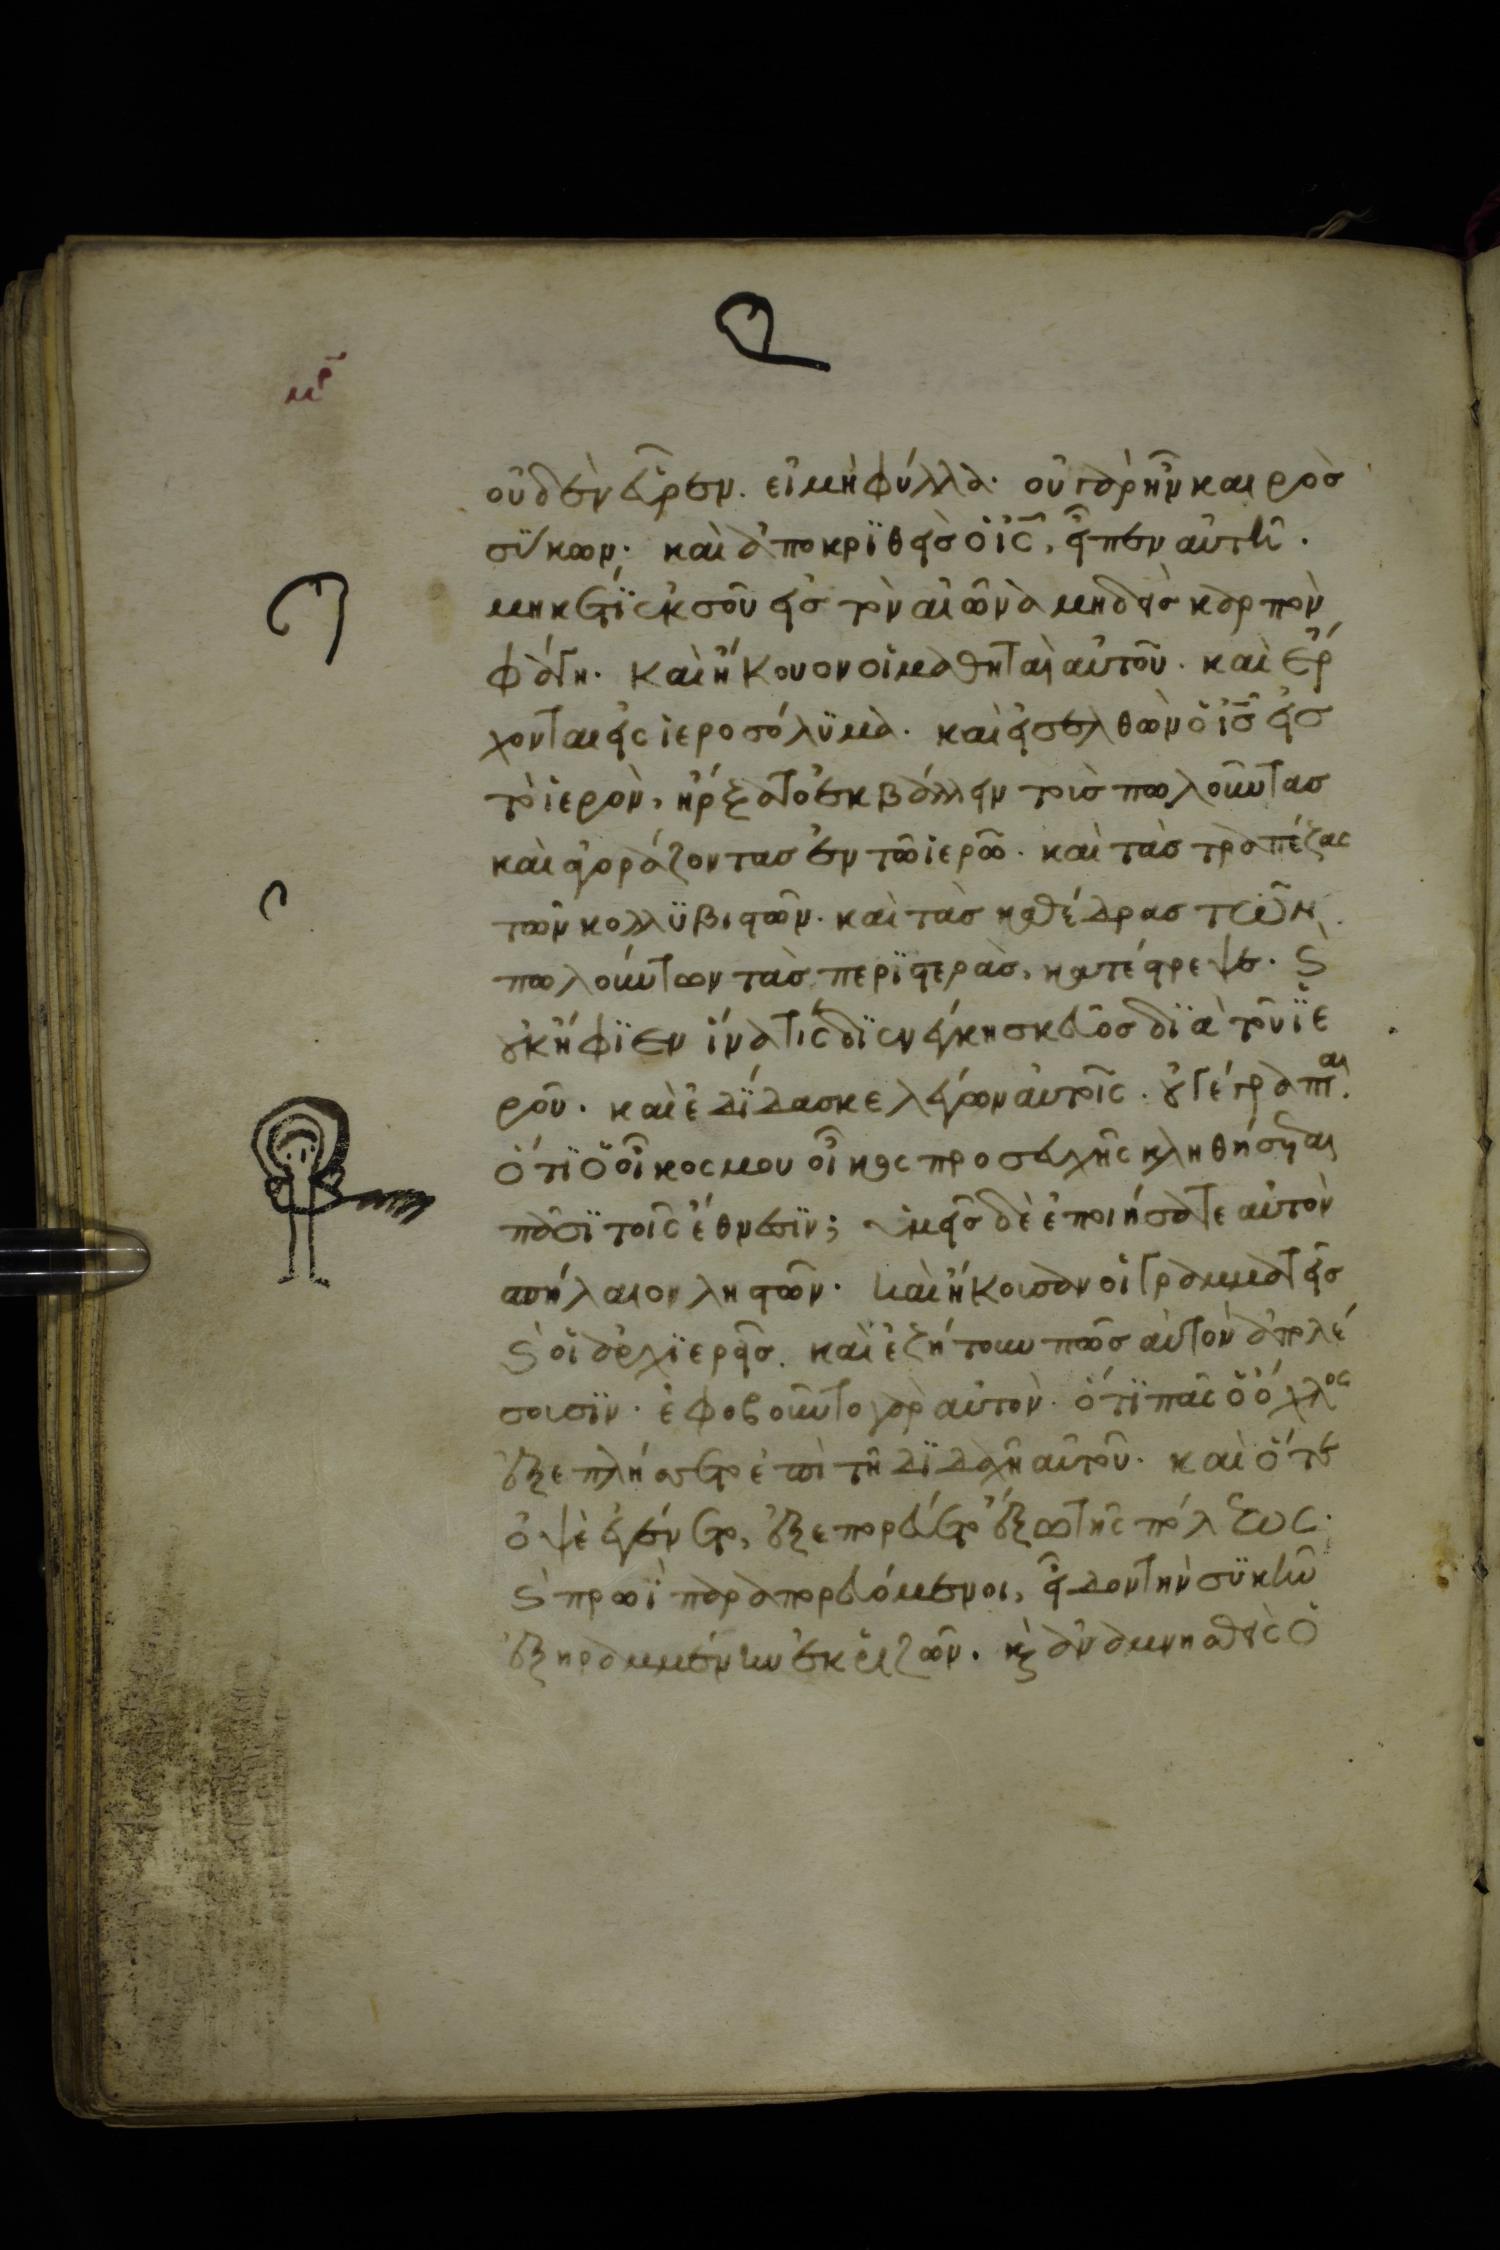 οὐδὲν εὗρεν. εἰ μὴ φύλλα. οὐ γὰρ ἦν καιρὸσ
σύκων. καὶ ἀποκρϊθεὶσ ὁ ἰς, εἶπεν αὐτῆ.
μηκέτϊ ἐκ σοῦ εἰσ τὸν αἰῶνα μηδεὶσ καρπὸν
φάγη. καὶ ἤκουον οἱ μαθηταὶ αὐτοῦ. καὶ ἔρ
χονται εἰς ἱεροσόλϋμα. καὶ εἰσελθὼν ὁ ἰς εἰσ
τὸ ἱερὸν, ἤρξατο ἐκβάλλειν τοὺσ πωλοῦντασ
καὶ ἀγοράζοντασ ἐν τῶ ἱερῶ. καὶ τὰσ τραπέζας
τῶν κολλϋβιστῶν. καὶ τὰσ καθέδρασ τῶν
πωλούντων τὰσ περϊστερὰσ, κατέστρεψε. ϗ
οὐκ ἤφϊεν ἵνα τὶς δϊενέγκη σκεῦοσ δϊὰ τοῦ ἱε
ροῦ. καὶ ἐδίδασκε λέγων αὐτοῖς. οὐ γέγραπται.
ὅτϊ ὁ οἶκος μου οἶκος προσευχῆς κληθήσεται
πᾶσϊ τοῖς ἔθνεσϊν; ὑμεῖσ δὲ ἐποιήσατε αὐτὸν
σπήλαιον ληστῶν. καὶ ἤκουσαν οἱ γραμματεῖσ
ϗ οἱ ἀρχϊερεῖσ. καὶ ἐζήτουν πῶσ αὐτὸν ἀπολέ
σουσϊν. ἐφοβοῦντο γὰρ αὐτὸν. ὅτϊ πᾶς ὁ ὄχλος
ἐξεπλήσσετο ἐπὶ τῆ δϊδαχῆ αὐτοῦ. καὶ ὅτε
ὀψὲ ἐγένετο, ἐξεπορεύετο ἔξω τῆς πόλεως.
ϗ πρωῒ παραπορευόμενοι, εἶδον τὴν σϋκῆν
ἐξηραμμένην ἐκ ῥιζῶν. ϗ ἀναμνησθεὶς ὁ